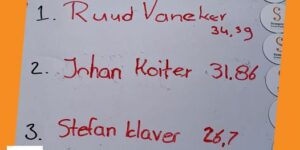 1. Ruud Vaneker
34,39
2. Johan Koiter 31.86
3. Stefan klaver 26,7